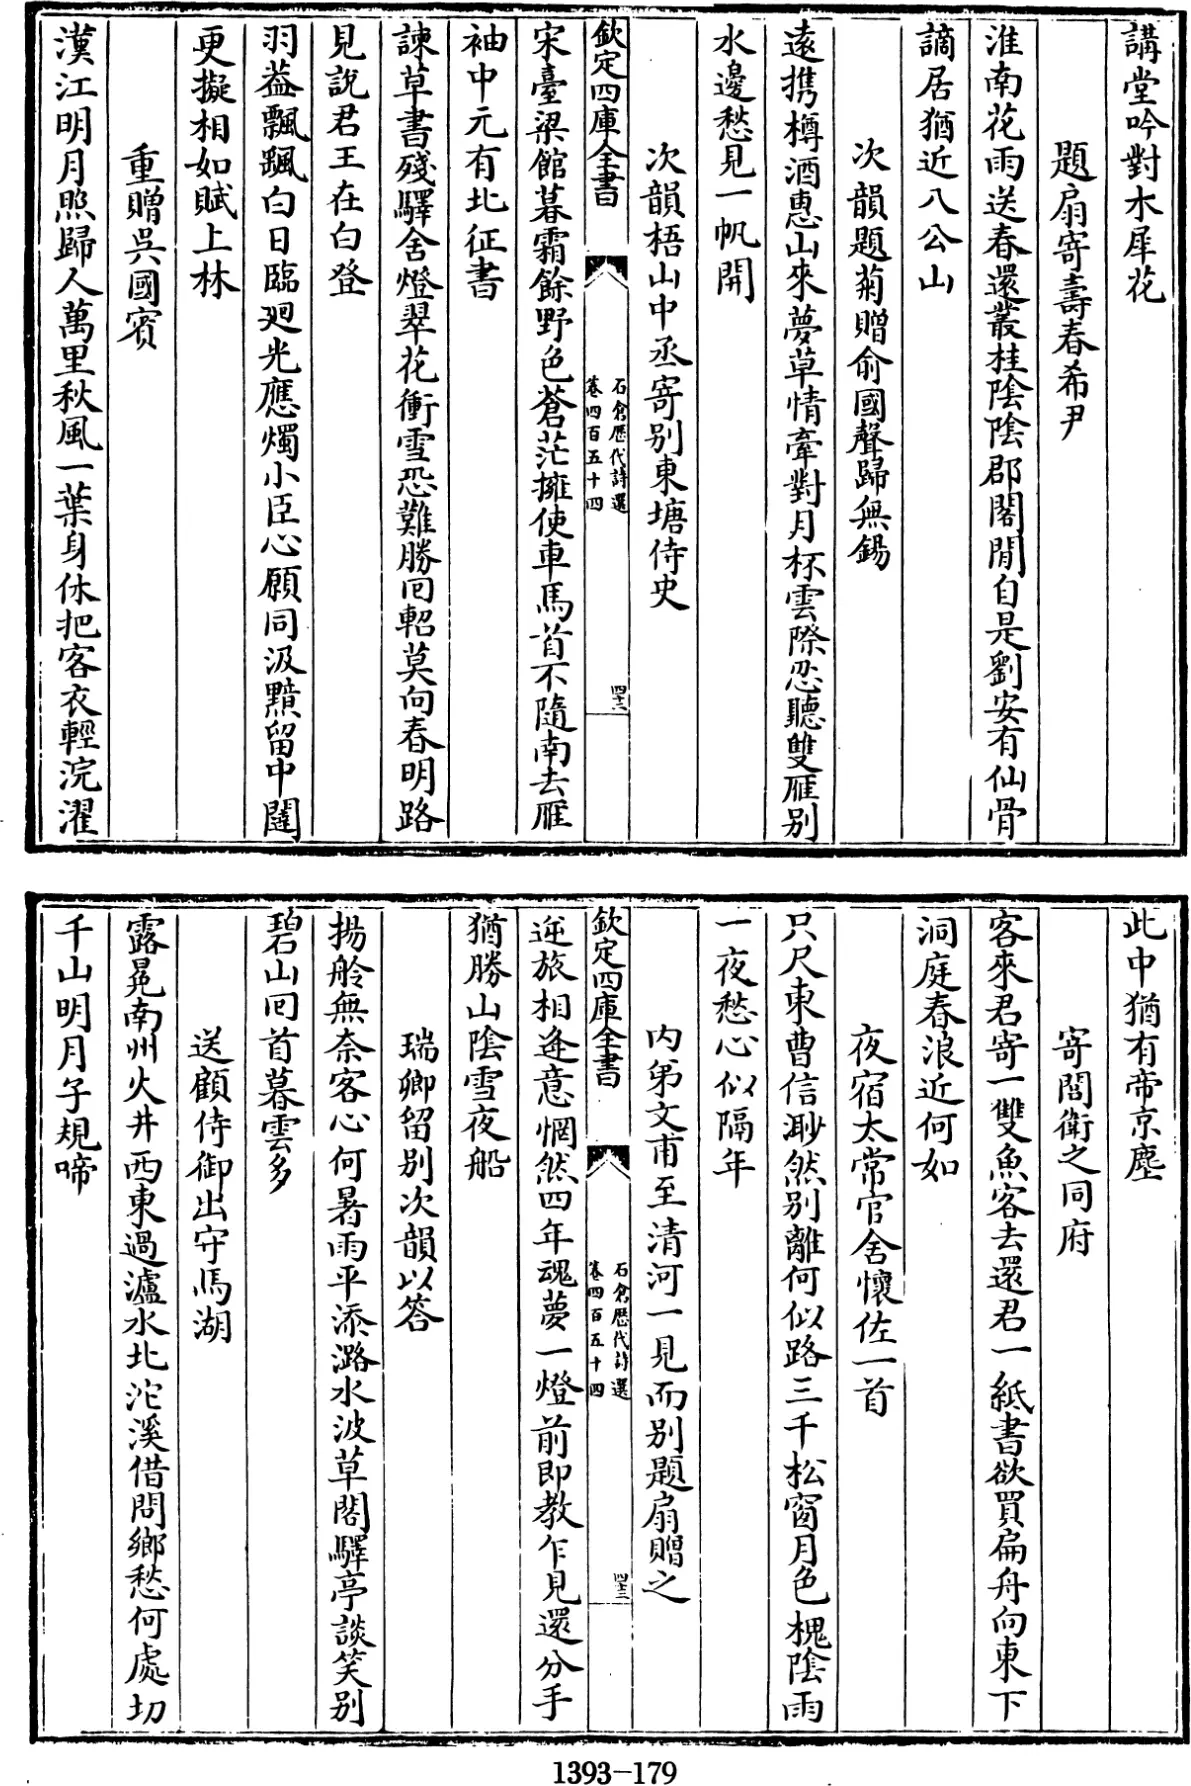 講堂吟對木犀花
題扇寄壽春希尹
淮南花雨送春還叢桂陰陰郡閣閒自是劉安有仙骨
謫居猶近八公山
次韻題菊贈俞國聲歸無錫
遠攜樽酒惠山來夢草情牽對月杯雲際忍聽雙雁別
水邊愁見一帆開
次韻梧山中丞寄別東塘侍史
欽定四庫全書
石倉歷代詩選
卷四百五十四
四十二
宋臺梁館暮霜餘野色蒼茫擁使車馬首不隨南去雁
袖中元有北征書
諫草書殘驛舍燈翠花衝雪恐難勝回軺莫向春明路
見說君王在白登
羽葢飄飄白日臨廻光應燭小臣心願同汲黯留中闥
更擬相如賦上林
重贈吳國賓
漢江明月照歸人萬里秋風一葉身休把客衣輕浣濯
此中猶有帝京塵
寄閻衛之同府
客來君寄一雙魚客去還君一紙書欲買扁舟向東下
洞庭春浪近何如
夜宿太常官舍懷佐一首
只尺東曹信渺然別離何似路三千松窗月色槐陰雨
一夜愁心似隔年
内弟文甫至清河一見而別題扇贈之
欽定四庫全書
石倉歷代詩選
卷四百五十四
四十三
逆旅相逢意惘然四年魂夢一燈前即教乍見還分手
猶勝山陰雪夜船
瑞卿留別次韻以答
揚舲無奈客心何暑雨平添潞水波草閣驛亭談笑別
碧山回首暮雲多
送顧侍御出守馬湖
露冕南州火井西東過瀘水北沱溪借問鄉愁何處切
千山明月子規啼
1393-179